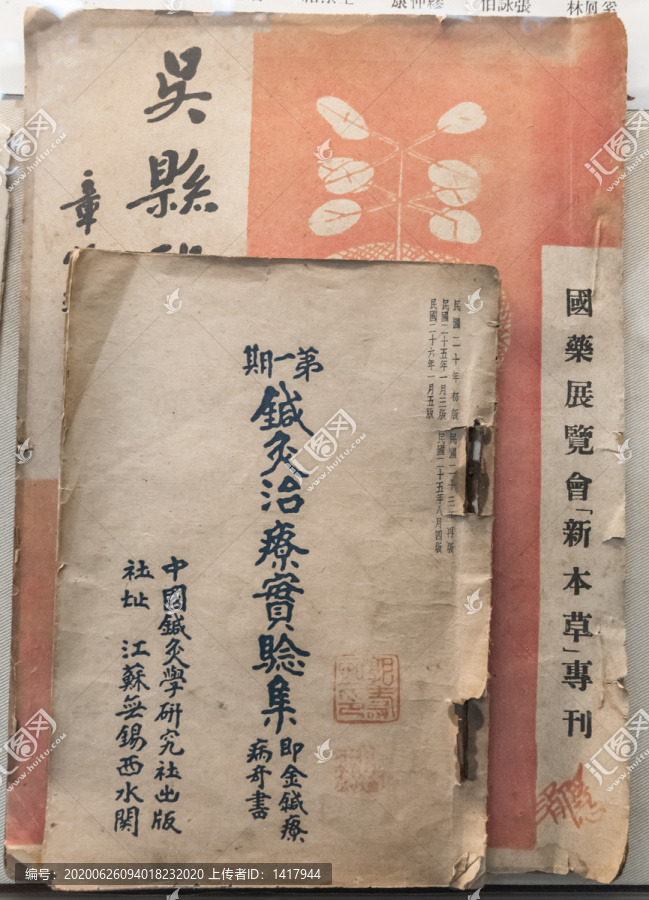 吳縣
章
國藥展覽會「新本草」專刊
民國二十年初版 民國二十三年再版
民國二十五年一月三版 民國二十五年八月四版
民國二十六年一月五版
第一期
鍼灸治療實騐集
即金鍼療
病奇書
中國鍼灸學研究社出版
社址 江蘇無錫西水関
汇图网
www.huitu.com
编号：20200626094018232020 上传者ID：1417944